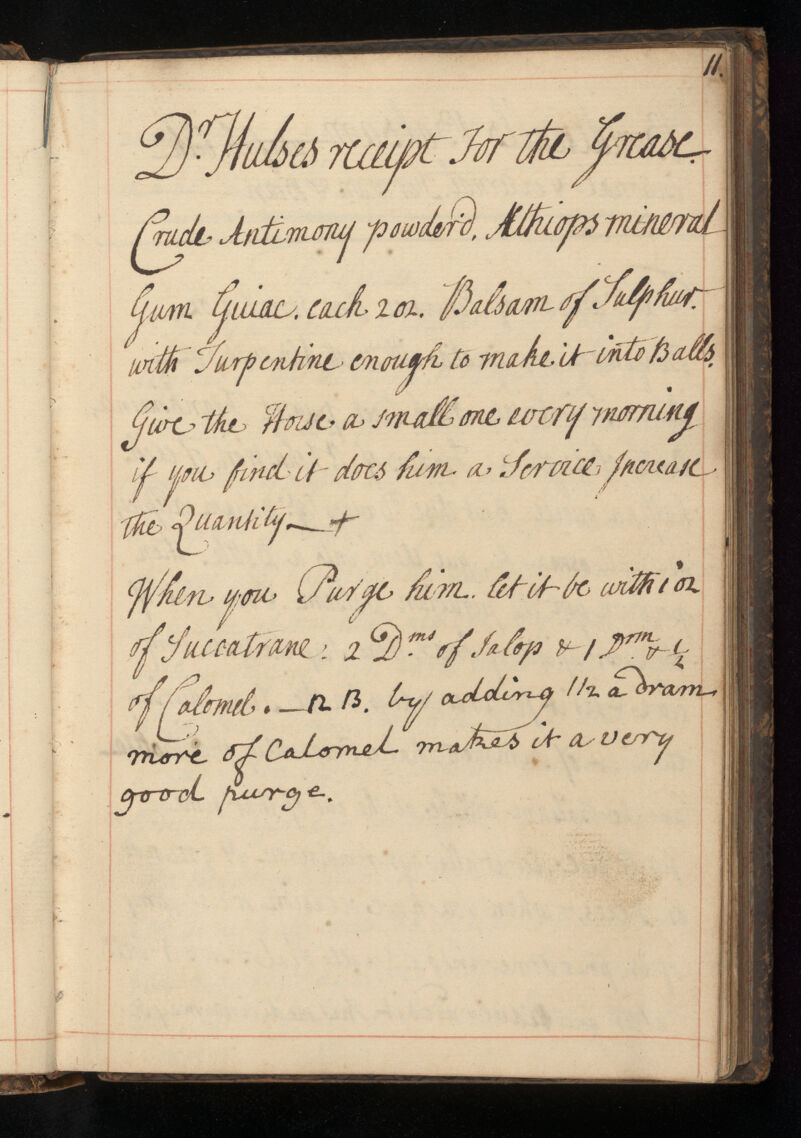 11.
Dr. Hulses receipt For the Grease.
Crude Antimony powder'd. Æthiops mineral
Gum Guiac. each 2 oz. Balsam of Sulphur.
with Turpentine enough to make it into Balls.
Give the Horse a small one every morning
if you find it does him a Service Increase
the Quantity — +
When you Purge him. let it be with 1 oz
of Succatrane: 2 Dms. of Jalop & 1 Drm. & 1/2
of Calomel. — N B. by adding 1/2 a dram
more of Calomel makes it a very
good purge.